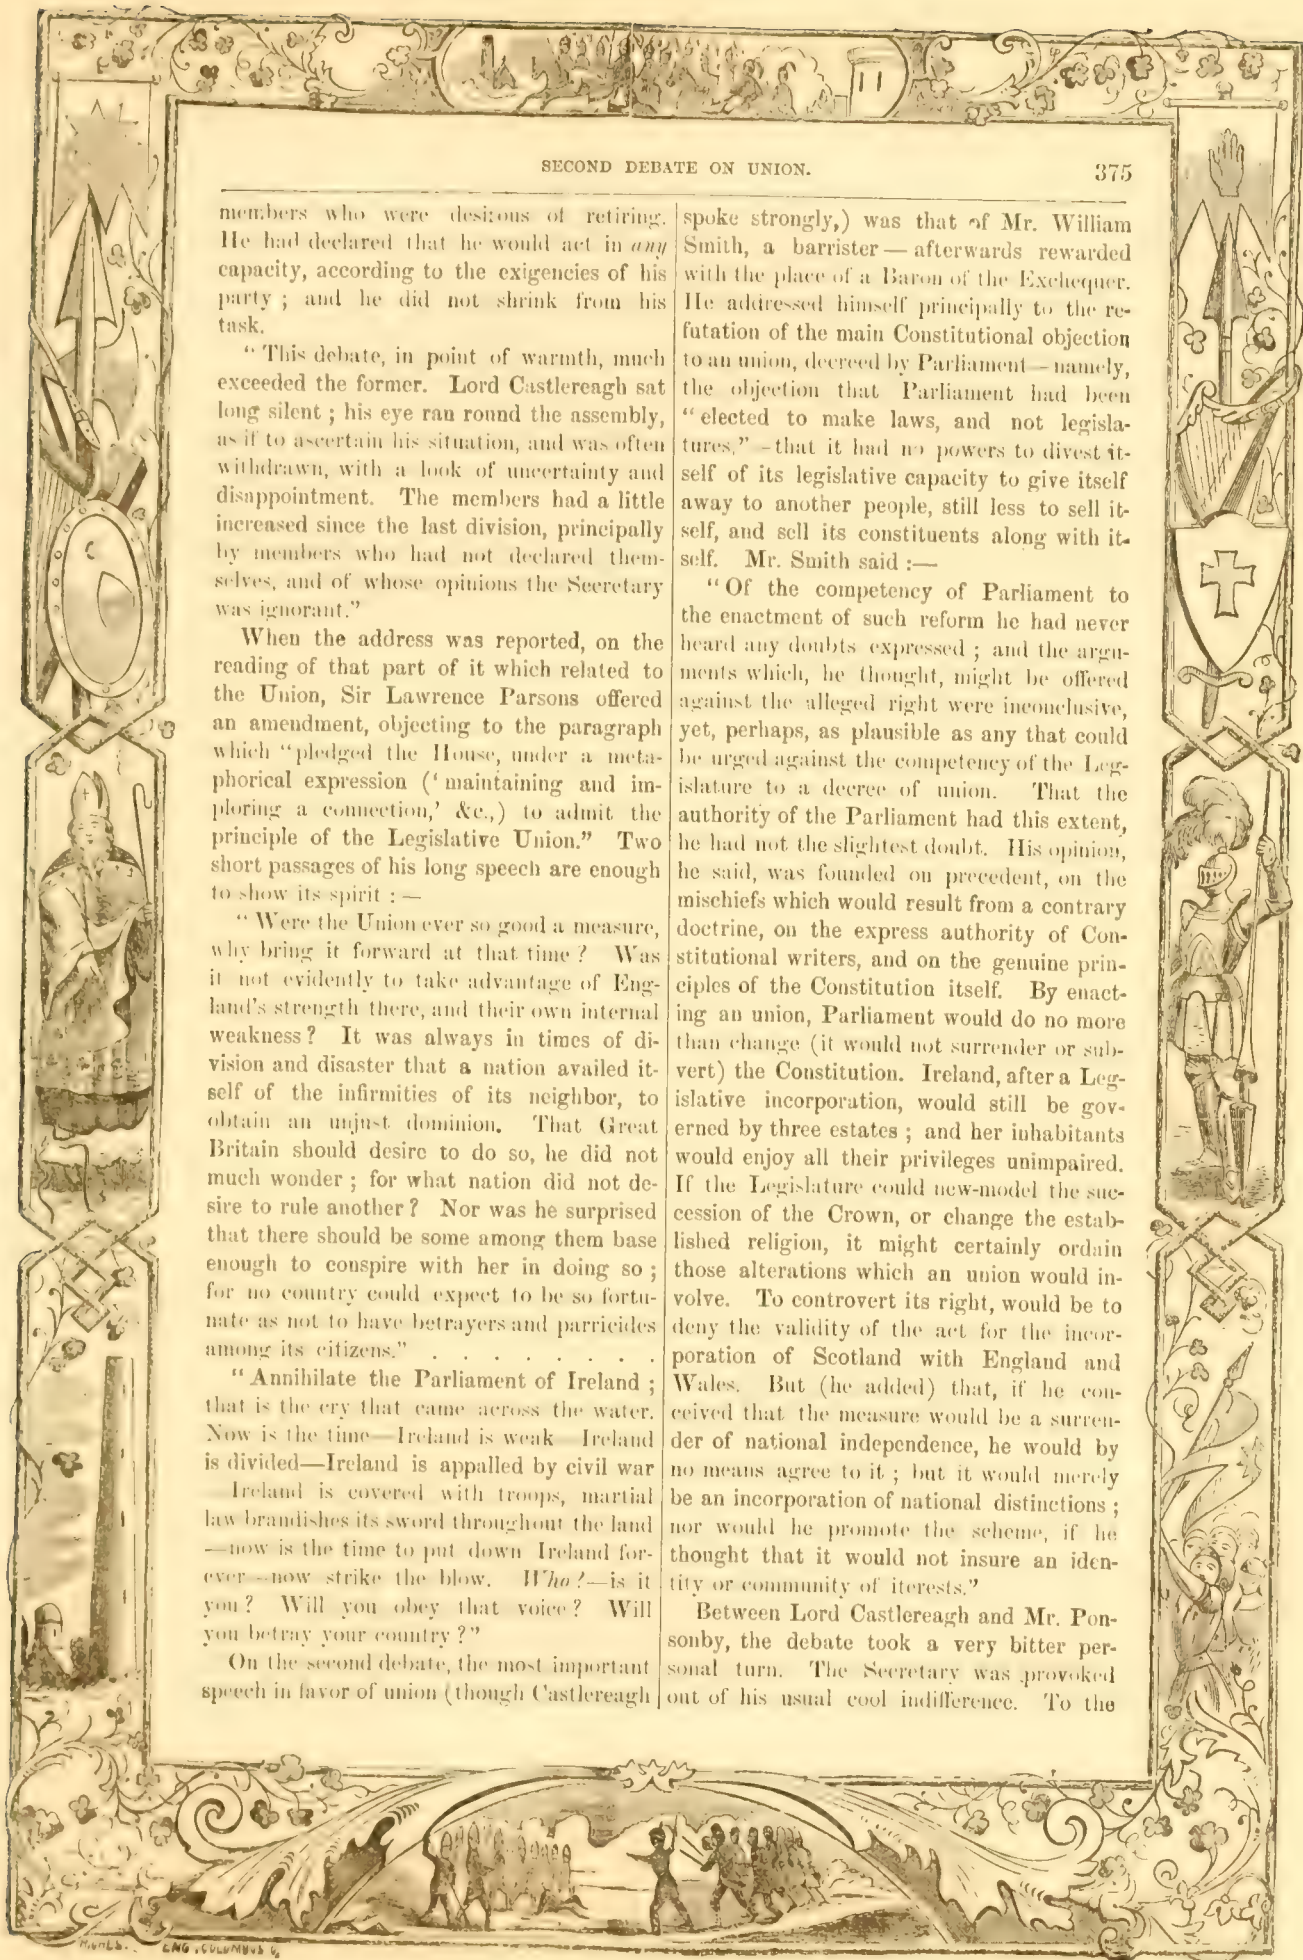 SECOND DEBATE ON UNION.
375
members who were desirous of retiring.
He had declared that he would act in any
capacity, according to the exigencies of his
party ; and he did not shrink from his
task.
" This debate, in point of warmth, much
exceeded the former. Lord Castlereagh sat
long silent ; his eye ran round the assembly,
as if to ascertain his situation, and was often
withdrawn, with a look of uncertainty and
disappointment. The members had a little
increased since the last division, principally
by members who had not declared them-
selves, and of whose opinions the Secretary
was ignorant."
When the address was reported, on the
reading of that part of it which related to
the Union, Sir Lawrence Parsons offered
an amendment, objecting to the paragraph
which "pledged the House, under a meta-
phorical expression (' maintaining and im-
ploring a connection,' &c.,) to admit the
principle of the Legislative Union." Two
short passages of his long speech are enough
to show its spirit : —
" Were the Union ever so good a measure,
why bring it forward at that time ? Was
it not evidently to take advantage of Eng-
land's strength there, and their own internal
weakness ? It was always in times of di-
vision and disaster that a nation availed it-
self of the infirmities of its neighbor, to
obtain an unjust dominion. That Great
Britain should desire to do so, he did not
much wonder ; for what nation did not de-
sire to rule another ? Nor was he surprised
that there should be some among them base
enough to conspire with her in doing so ;
for no country could expect to be so fortu-
nate as not to have betrayers and parricides
among its citizens." . . . . . . . .
" Annihilate the Parliament of Ireland ;
that is the cry that came across the water.
Now is the time—Ireland is weak Ireland
is divided—Ireland is appalled by civil war
Ireland is covered with troops, martial
law brandishes its sword throughout the land
—now is the time to put down Ireland for-
ever—now strike the blow. Who ?—is it
you ? Will you obey that voice ? Will
you betray your country ?"
On the second debate, the most important
speech in favor of union (though Castlereagh
spoke strongly,) was that of Mr. William
Smith, a barrister — afterwards rewarded
with the place of a Baron of the Exchequer.
He addressed himself principally to the re-
futation of the main Constitutional objection
to an union, decreed by Parliament—namely,
the objection that Parliament had been
" elected to make laws, and not legisla-
tures," -that it had no powers to divest it-
self of its legislative capacity to give itself
away to another people, still less to sell it-
self, and sell its constituents along with it-
self. Mr. Smith said :—
" Of the competency of Parliament to
the enactment of such reform he had never
heard any doubts expressed ; and the argu-
ments which, he thought, might be offered
against the alleged right were inconclusive,
yet, perhaps, as plausible as any that could
be urged against the competency of the Leg-
islature to a decree of union. That the
authority of the Parliament had this extent,
he had not the slightest doubt. His opinion,
he said, was founded on precedent, on the
mischiefs which would result from a contrary
doctrine, on the express authority of Con-
stitutional writers, and on the genuine prin-
ciples of the Constitution itself. By enact-
ing an union, Parliament would do no more
than change (it would not surrender or sub-
vert) the Constitution. Ireland, after a Leg-
islative incorporation, would still be gov-
erned by three estates ; and her inhabitants
would enjoy all their privileges unimpaired.
If the Legislature could new-model the suc-
cession of the Crown, or change the estab-
lished religion, it might certainly ordain
those alterations which an union would in-
volve. To controvert its right, would be to
deny the validity of the act for the incor-
poration of Scotland with England and
Wales. But (he added) that, if he con-
ceived that the measure would be a surren-
der of national independence, he would by
no means agree to it ; but it would merely
be an incorporation of national distinctions ;
nor would he promote the scheme, if he
thought that it would not insure an iden-
tity or community of iterests."
Between Lord Castlereagh and Mr. Pon-
sonby, the debate took a very bitter per-
sonal turn. The Secretary was provoked
out of his usual cool indifference. To the
ENG. COLUMBUS O.